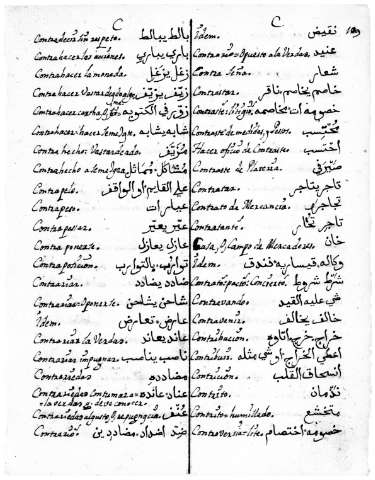 C
Contradecir sin respeto. بالط يبالط
Contrahacer las aciones. باري يباري
Contrahacer la moneda. زغل يزغل
Contrahacer زيف يزيف
Contrahacer زوّر في الكتوبه
Contrahazer: hacer semejante. شابه يشابه
Contrahecho: Vastardeado. مزيّف
Contrahecho a semejança مشاكل، مماثل
Contrapelo. علي القايم او الواقف
Contrapeso. عبارات
Contrapesar. عبّر يعبّر
Contra ponerse. عازل يعازل
Contraposicion. توارب، بالتوارب
Contrariar. ضادد يضادد
Contrariar: Oponerse. شاحن يشاحن
Idem. عارض، تعارض
Contrariar la Verdad. عاند يعاند
Contrariar impugnar. ناصب يناصب
Contrariedad مضادده
Contrariedad Contumaz عناد عانده
la verdad q.e se conoce.
Contrariedad algusto, O, repugnacia. عنف
Contrario. ضد اضداد، مضاددين
C
189
Idem. نقيض
Contrario: Opuesto a la Verdad. عنيد
Contra Seña. شعار
Contrastar. خاصم يخاصم، ناقر
Contraste: litigio. خصومه ات، مخاصمه
Contraste de medidas, y pesos. محتسب
Hacer oficio de Contraste. احتسب
Contraste de Plateria. صيرفي
Contratar. تاجر يتاجر
Contrato de Mercancia. تجاره
Contratante. تاجر تجار
Casa, O, Campo de Mercadores. خان
Idem. وكاله، قيساريه، فندق
Contrato: pacto: Concierto. شرط شروط
Contravando. شي عليه القيد
Contravenir. خالف يخالف
Contribucion. خراج، خرج، اتاوه
Contribuir. اعطي الخراج او شي مثله
Contricion. انسحاق القلب
Contrito. ندمان
Contrito: humillado. متخشع
Controversia: lite. خصومه، اختصام